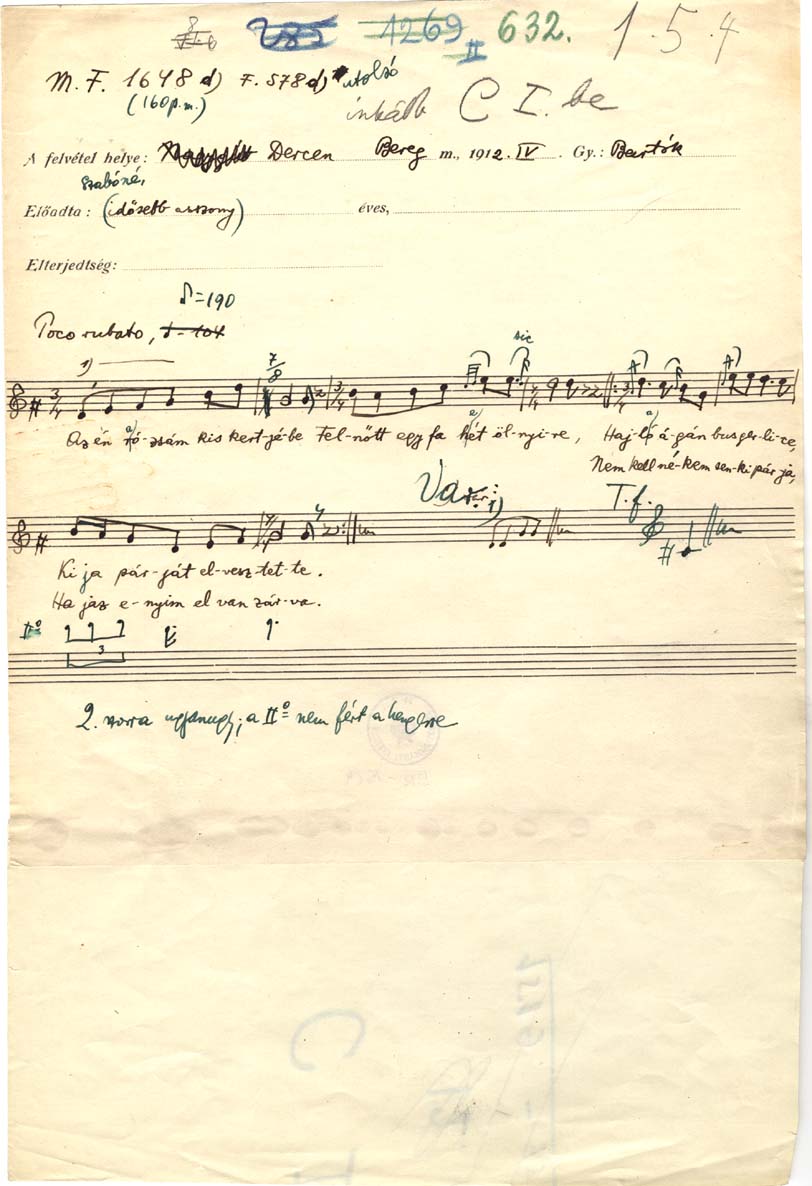 1269 II 632. 1.5.4
M. F. 1648 d) F. 578 d) utolsó
(160 p.m.)
inkább C I. be
A felvétel helye: Dercen Bereg m., 1912. IV. Gy.: Bartók
Szabóné,
Előadta: (idősebb asszony) éves,
Elterjedtség:
♪=190
Poco rubato,
1)
7/8
sic
3/4
Az én ró-zsám kis kert-jé-be Fel-nőtt egy fa két öl-nyi-re, Haj-ló á-gán bus ger-li-ce,
Nem kell né-kem sen-ki pár-ja,
Var.: 1)
T. f.
Ki ja pár-ját el-vesz-tet-te.
Ha jaz e-nyim el van zár-va.
IIº
3
2. sorra ugyanugy; a IIº nem fért a hengerre